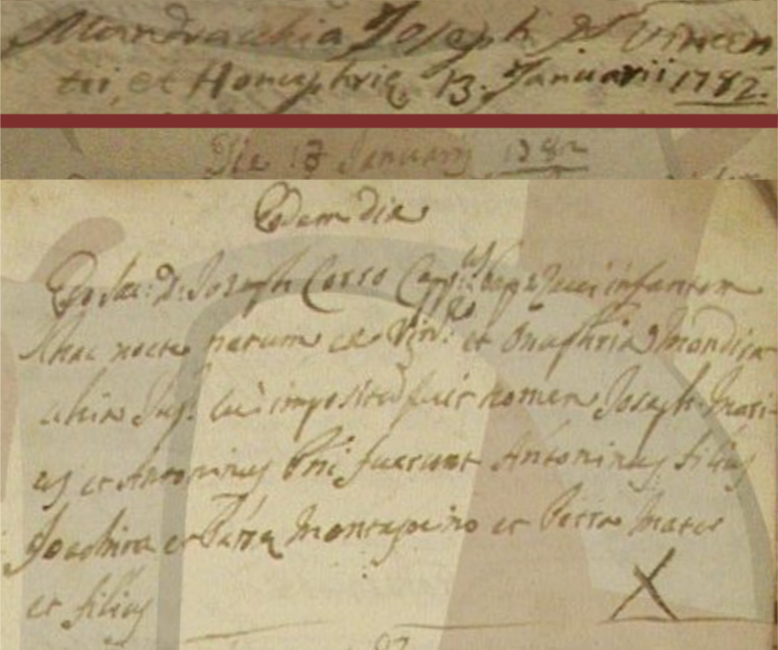 Mandracchia Joseph Vincen
tii, et Honuphriæ 13. Januarii 1782.
Die 13 January 1782
Eodem die
Ego Sac: D: Joseph Corso Capp: bapzavi infantem
hac nocte natum ex Vinc: et Onuphria Mondra
chia Jug: cui impositũ fuit nomen Joseph Mari
us et Antoninus Pñi fuerunt Antoninus filius
Joachira et Petra Montapeino et Petra Mater
et filius
X